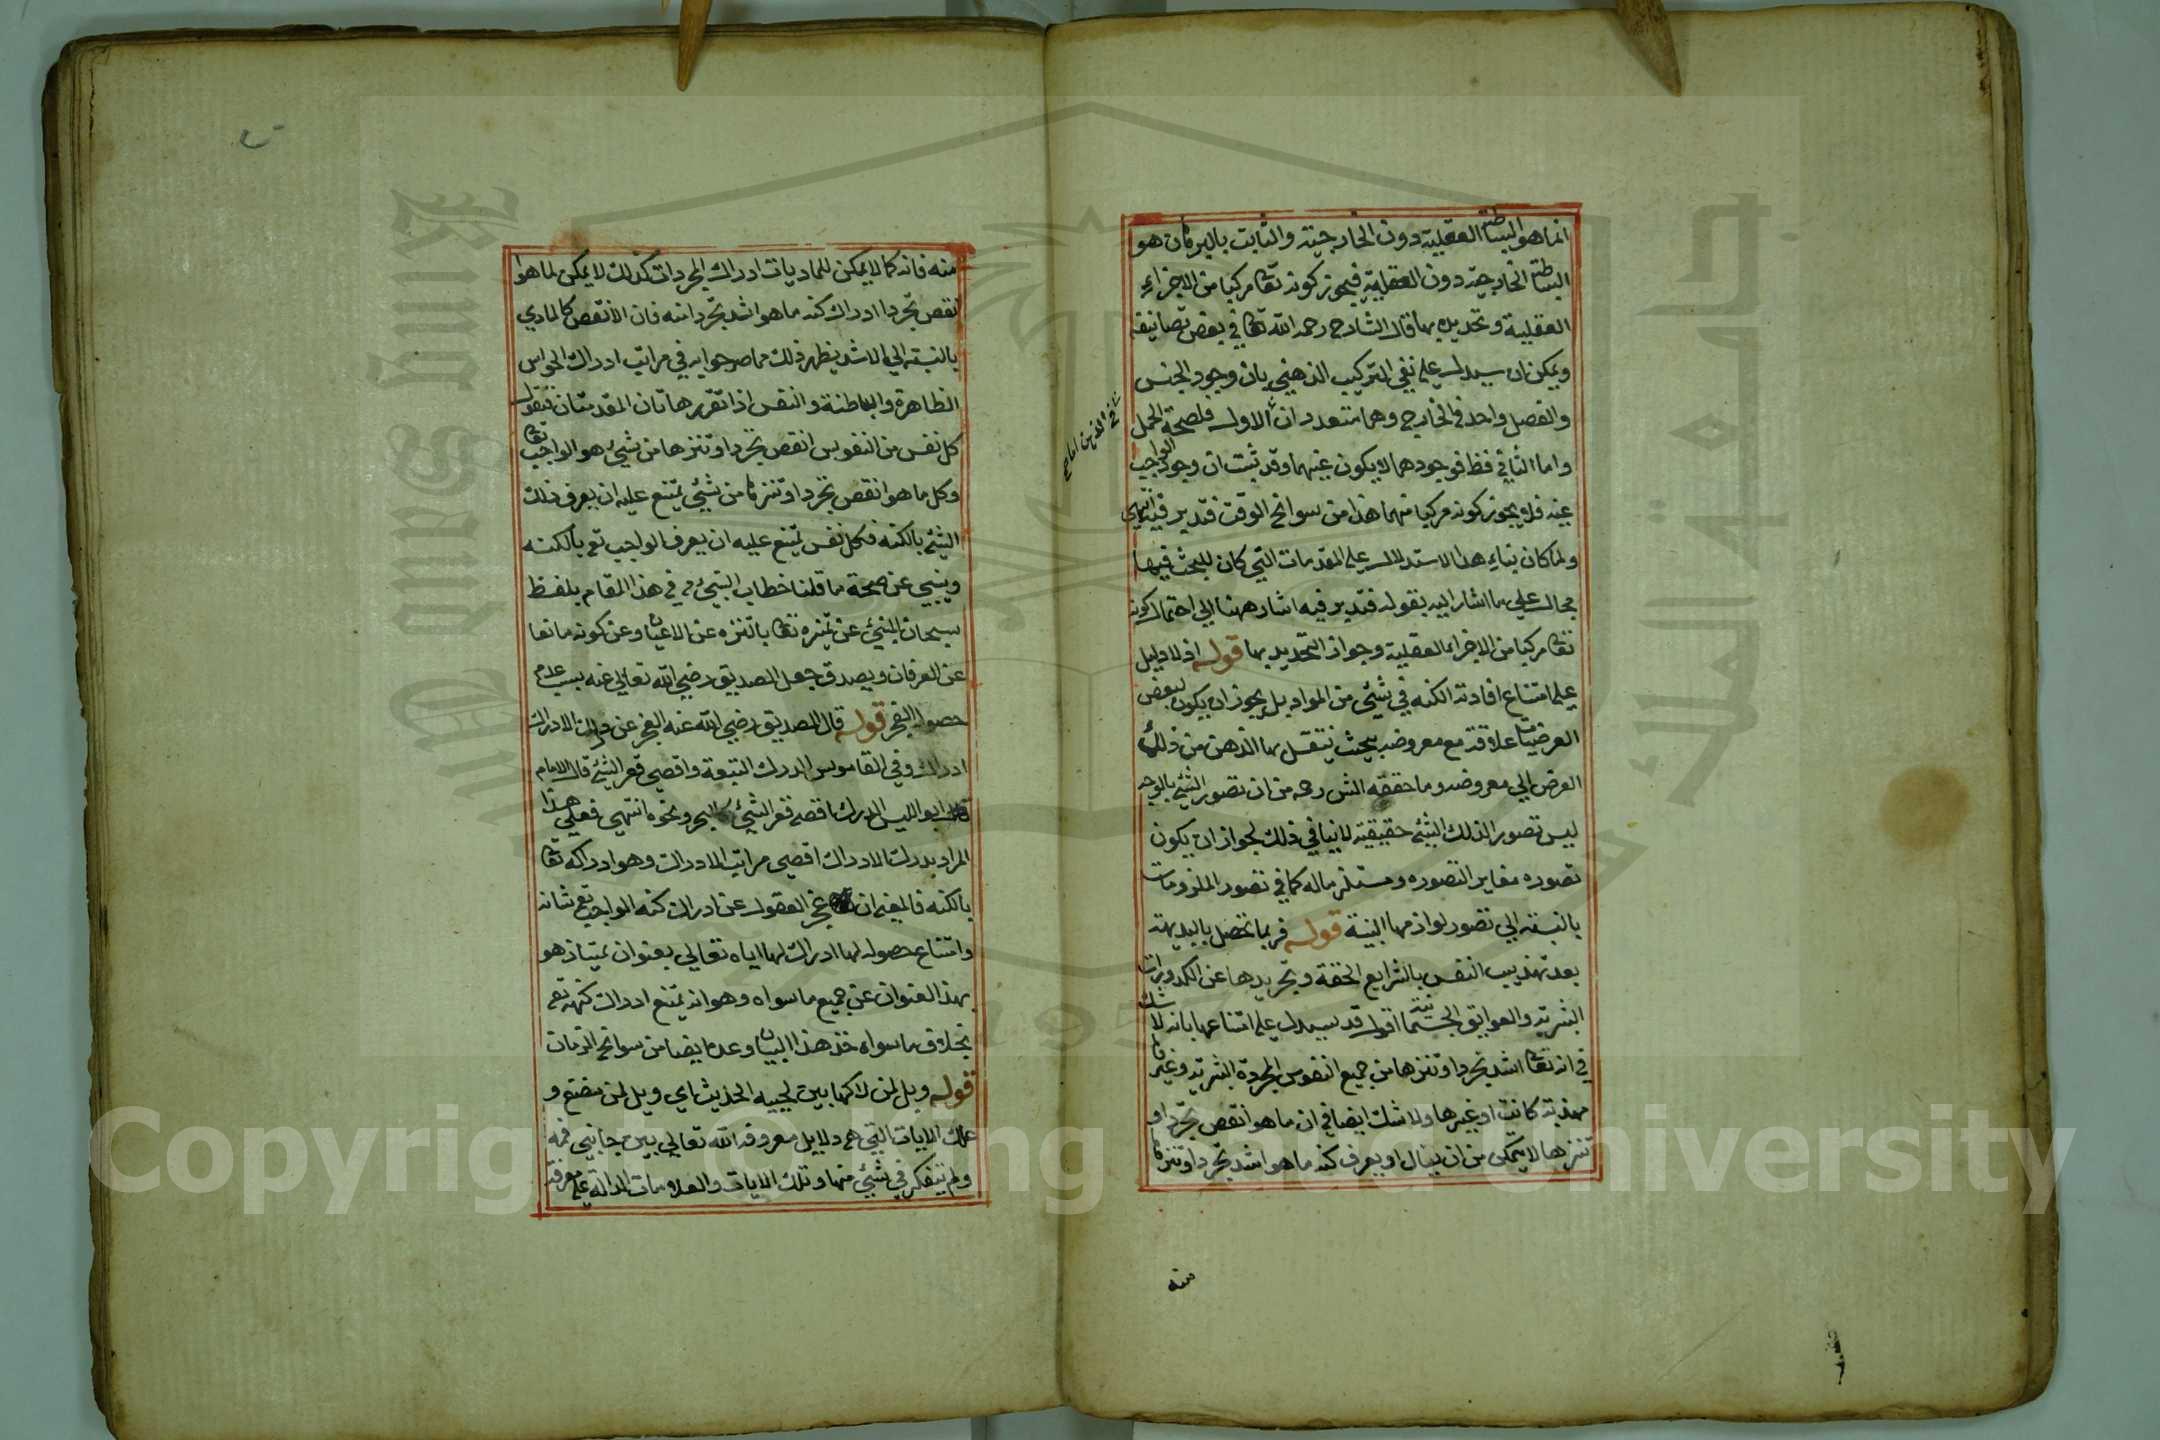 انما هو البساطة العقلية دون الخارجية والثابت بالبرهان هو
البساطة الخارجية دون العقلية فيجوز كونه تعا مركبا من الاجزاء
العقلية وتحديده بها قال الشارح رحمه الله تعا في بعض تصانيفه
ويمكن ان يستدل على نفي التركيب الذهني بان وجود الجنس
والفصل واحد في الخارج وهما متعددان الاول فلصحة الحمل
واما الثاني فظ فوجودهما لا يكون عينهما وقد ثبت ان وجود الواجب
عينه فلا يجوز كونه مركبا منهما هذا من سوانح الوقت فتدبر فيه انتهى
ولما كان بناء هذا الاستدلال على المقدمات التي كان للبحث فيها
مجال على ما اشار اليه بقوله فتدبر فيه اشار ههنا الى احتمال كونه
تعا مركبا من الاجزاء العقلية وجواز التحديد بها قوله اذ لا دليل
على امتناع افادته الكنه في شيئ من المواد بل يجوز ان يكون لبعض
العرضيات علاقة مع معروضه بحيث ينتقل بها الذهن من ذلك
العرض الى معروضه وما حققه الش رحمه من ان تصور الشيئ بالوجه
ليس تصور الذلك الشيئ حقيقية لا ينافي ذلك لجواز ان يكون
تصوره مغاير التصوره ومستلزما له كما في تصور الملزومات
بالنسبته الى تصور لوازمها البينة قوله فربما تحصل بالبديهة
بعد تهذيب النفس بالشرايع الحقة وتجريدها عن الكدورات
البشرية والعوايق الجسمانية اقول قد يستدل على امتناعها بانه لا شك
في انه تعا اشد تجردا وتنزها من جميع النفوس المجردة البشرية وغيرها
مهذبة كانت او غيرها ولا شك ايضا في ان ما هو انقص تجردا و
تنزها لا يتمكن من ان ينال او يعرف كنه ما هو اشد تجردا وتنزها
منه
منه فانه كما لا يمكن للماديات ادراك المجردات كذلك لا يمكن لما هو
انقص تجردا ادراك كنه ما هو اشد تجردا منه فان الانقص كالمادي
بالنسبته الى الاشد يظهر ذلك مما صرحوا به في مراتب ادراك الحواس
الظاهرة والباطنة والنفس اذا تقرر هاتان المقدمتان فنقول
كل نفس من النفوس انقص تجردا وتنزها من شيئ هو الواجب تعا
وكل ما هو انقص تجردا وتنزها من شيئ يمتنع عليه ان يعرف ذلك
الشيئ بالكنه فكل نفس يمتنع عليه ان يعرف الواجب تع بالكنه
وينبي عن صحة ما قلنا خطاب النبي م في هذا المقام بلفظ
سبحان المنبئ عن تنزه تعا بالتنزه عن الاعيان وعن كونه مانعا
عن العرفان ويصدق جعل الصديق رضي الله تعالى عنه بسبب عدم
حصوله العجز قوله قال الصديق رضي الله عنه العجز عن درك الادراك
ادراك وفي القاموس الدرك التبعة واقصى قعر الشيئ قال الامام
ابو الليس الدرك اقصى قعر الشيئ كالبحر ونحوه انتهى فعلى هذا
المراد بدرك الادراك اقصى مراتب الادراك وهو ادراكه تعا
بالكنه فالمعنى ان عجز العقول عن ادراك كنه الواجب تع شانه
وامتناع حصوله لها ادراك لها اياه تعالى بعنوان يمتاز هو
بهذا العنوان عن جميع ما سواه وهو انه يمتنع ادراك كنهه تع
بخلاف ما سواه خذ هذا البيان وعده ايضا من سوانح الزمان
قوله ويل لمن لاكها بين لحييه الحديث اي ويل لمن مضغ و
علك الايات التي هي دلايل معروفة الله تعالى بين جانبي فمه
ولم يتفكر في شيئ منها وتلك الايات والعلامات الدالة على معرفة
Copyright © King Saud University
1957